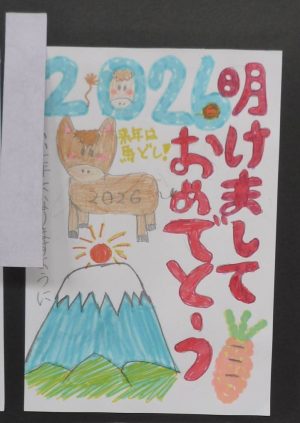 2026
明けまして
おめでとう
来年は
馬どし!
2026